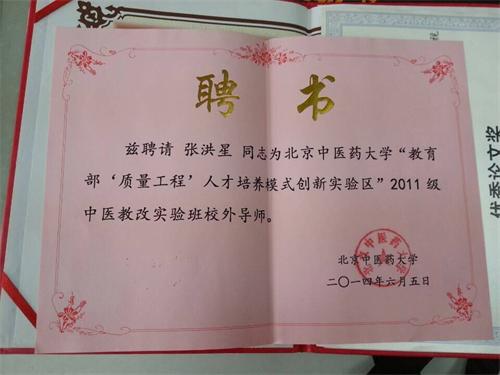 聘 书
兹聘请 张洪星 同志为北京中医药大学“教育
部‘质量工程’人才培养模式创新实验区”2011级
中医教改实验班校外导师。
北京中医药大学
二〇一四年六月五日
北京中医药大学
优秀论文奖